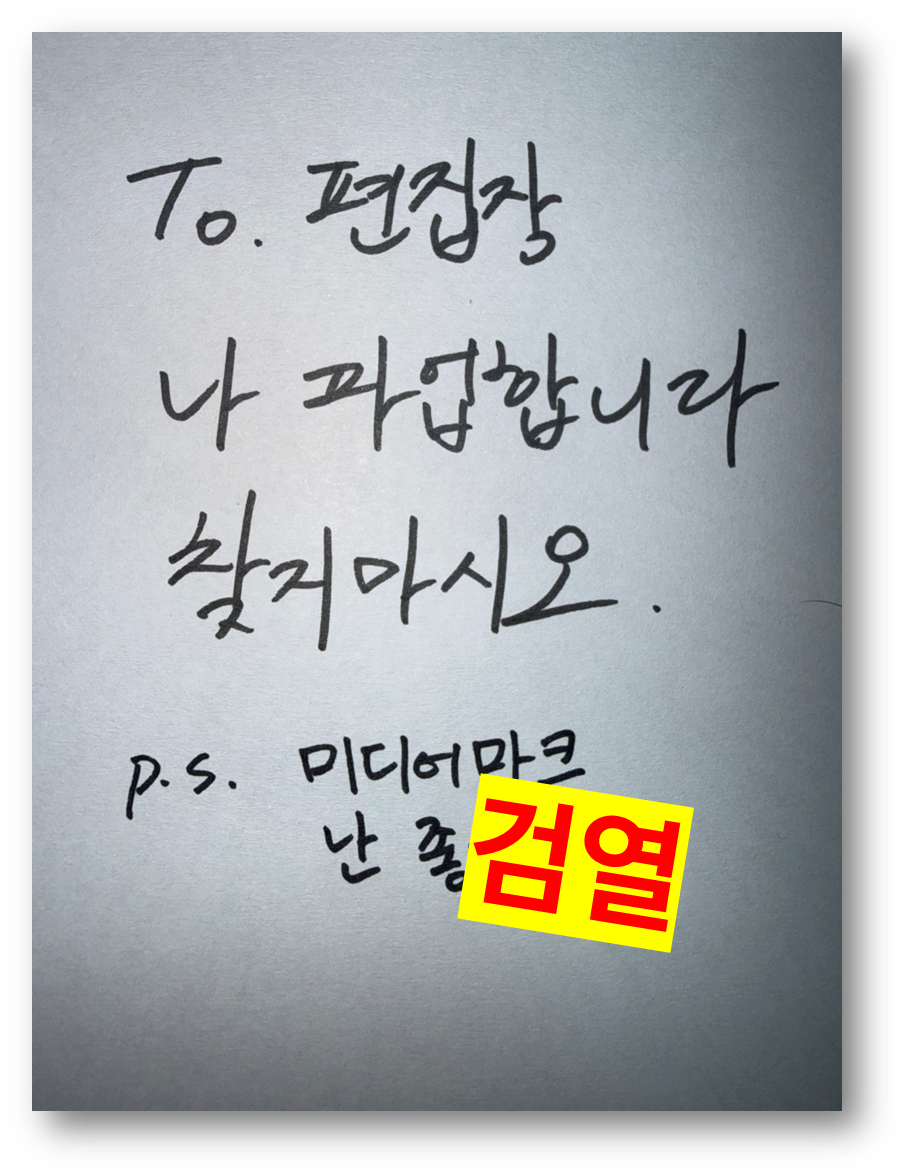 To. 편집장
나 파업합니다
찾지마시오.
p.s. 미디어마크
난
검열